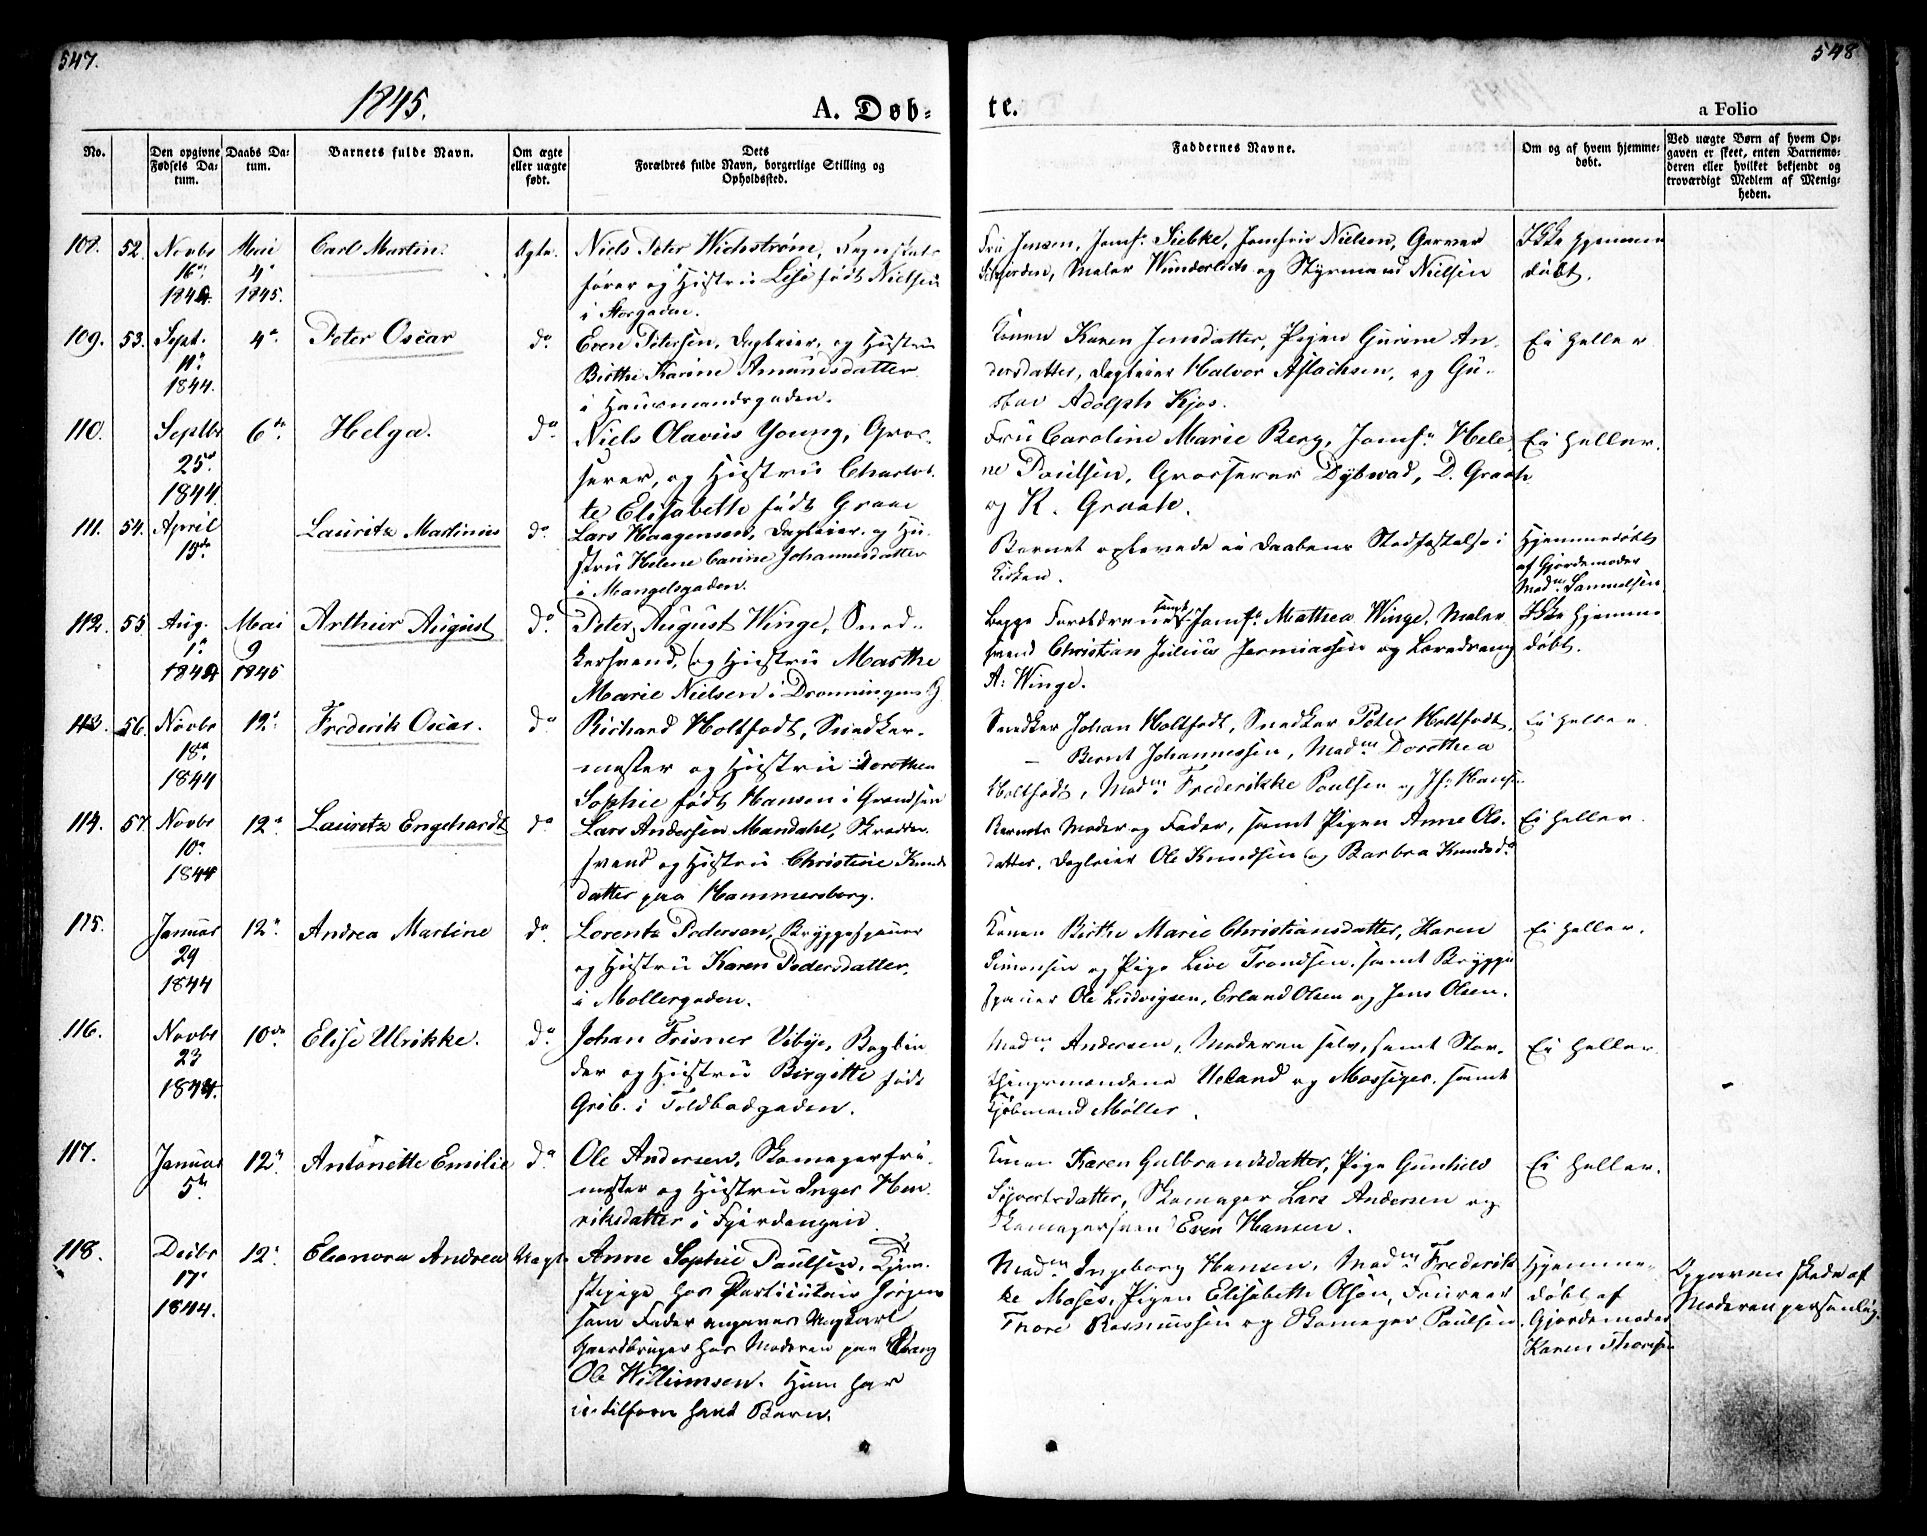 547.
548
1845.
A. Døb-
te.
a Folio
No.
Den opgivne Fødsels Datum.
Daabs Datum.
Barnets fulde Navn.
Om ægte eller uægte født.
Dets Forældres fulde Navn, borgerlige Stilling og Opholdssted.
Faddernes Navne.
Om og af hvem hjemmedøbt.
Ved uægte Børn af hvem Opgaven er skeet, enten Barnemoderen eller hvilket bekjendt og troværdigt Medlem af Menigheden.
108. 52. Novbr 16de 1844. Mai 4de 1845. Carl Martin. Ægte. Niels Peter Wichstrøm, Regnskabs-
fører og Hustru Lise født Nielsen
i Storgaden.
Fru Jensen, Jomf: Siebke, Jomfru Nielsen, Garver
Maler Wunderlich og Styrmand Nielsen
Ikke hjemme
døbt.
109. 53. Sept. 11. 1844. 4de Peter Oscar do Even Petersen, Dagleier, og Hustru
Birthe Karine Amundsdatter
i Hausmandsgaden.
Konen Karen Jensdatter, Pigen Gurine An-
dersdatter, Dagleier Halvor Aslachsen, og Gu-
stav Adolph Kjos.
Ei heller
110. Septbr 25. 1844. 6te Helga. do Niels Olavus Young, Gros-
serer, og Hustru Charlot-
te Elisabeth født Graae
Fru Caroline Marie Berg, Jomf: Hele
ne Poulsen, Grosserer Dybwad, D. Graah
og K. Graah.
Ei heller.
111. 54. April 15de Lauritz Martinius do Lars Haagensen, Dagleier og Hu-
stru Helene Carine Johannesdatter
i Mangelsgaden.
Barnet oplevede ei Daabens Stadfæstelse i
Kirken.
Hjemmedøbt
af Gjordemoder
Madm Samuelsen
112. 55 Aug. 1. 1844 Mai 9 1845 Arthur August do Peter August Winge, Sned-
kersvend, og Hustru Marthe
Marie Nielsen i Dronningens G
Begge Forældrene samt Jomf: Mathea Winge, Maler
svend Christian Julius Jermiassen og Læredreng
A: Winge.
Ikke hjemme
døbt.
113. 56. Novbr 18de 1844 12te Frederik Oscar. do Richard Holtfodt, Snedker-
mester og Hustru Dorothea
Sophie født Hansen i Grændsen
Snedker Johan Holtfodt, Snedker Peter Holtfodt,
— Bernt Johannessen, Madm Dorothea
Holtfodt, Madm Frederikke Poulsen og Jf: Hansen
Ei heller.
114. 57 Novbr 10de 1844 12te Lauritz Engehardt do Lars Andersen Mandahl, Skrædder-
svend og Hustru Christine Knuds
datter paa Hammersborg.
Barnets Moder og Fader, samt Pigen Anne Ols-
datter, Dagleier Ole Knudsen og Barbra Knudsd:
Ei heller.
115. Januar 29 1844 12te Andrea Martine do Lorentz Pedersen, Bryggesjouer
og Hustru Karen Pedersdatter,
i Møllergaden.
Konen Birthe Marie Christiansdatter, Karen
Simonsen og Pige Live Trondsen, samt Brygge
sjouer Ole Ludvigsen, Erland Olsen og Jens Olsen.
Ei heller.
116. Novbr 23 1844. 10de Elise Ulrikke. do Johan Frisner Vibye, Bogbin
der og Hustru Birgitte født
Grib. i Toldbodgaden.
Madm Andersen, Moderen selv, samt Stor-
thingsmændene Ueland og Mossiger, samt
Kjøbmand Møller.
Ei heller.
117. Januar 5te 12te Antonette Emilie do Ole Andersen, Skomagerfri-
mester og Hustru Inger Hen-
riksdatter i Fjerdingen
Konen Karen Gulbrandsdatter, Pige Gunhild
Syvertsdatter, Skomager Lars Andersen og
Skomagersvend Even Hansen.
Ei heller.
118. Decbr 17de 1844. 12te Eleonora Andrea Uægte Anne Sophie Paulsen, Tjene-
stepige hos Particulair Jørgens
som Fader angives Ungkarl
Gaardbruger hos Moderen paa
Ole Willumsen. Hun har
ei tilforn havt Barn.
Madm Ingeborg Hansen, Madm Frederik
ke Moses, Pigen Elisabeth Olsen,
Thore Rasmussen og Skomager Paulsen
Hjemme-
døbt af
Gjordemoder
Karen Thorsen
Opgaven skede af
Moderen personlig.